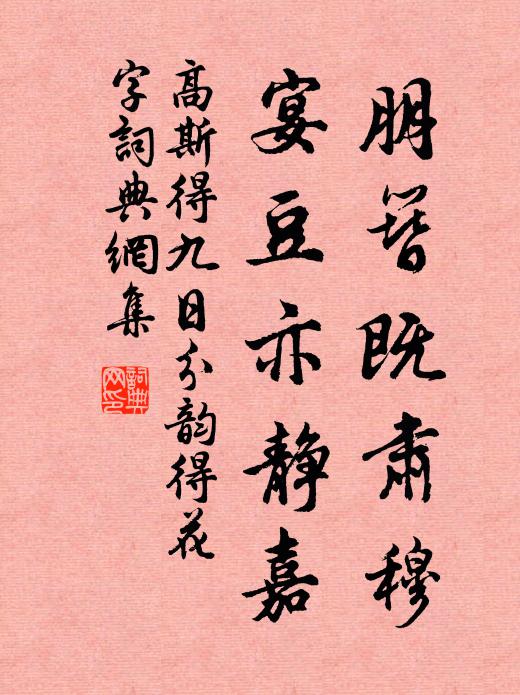 朋簪既肃穆
宴豆亦静嘉
高斯得九日分韵得花
字詞典網集
詞典网印